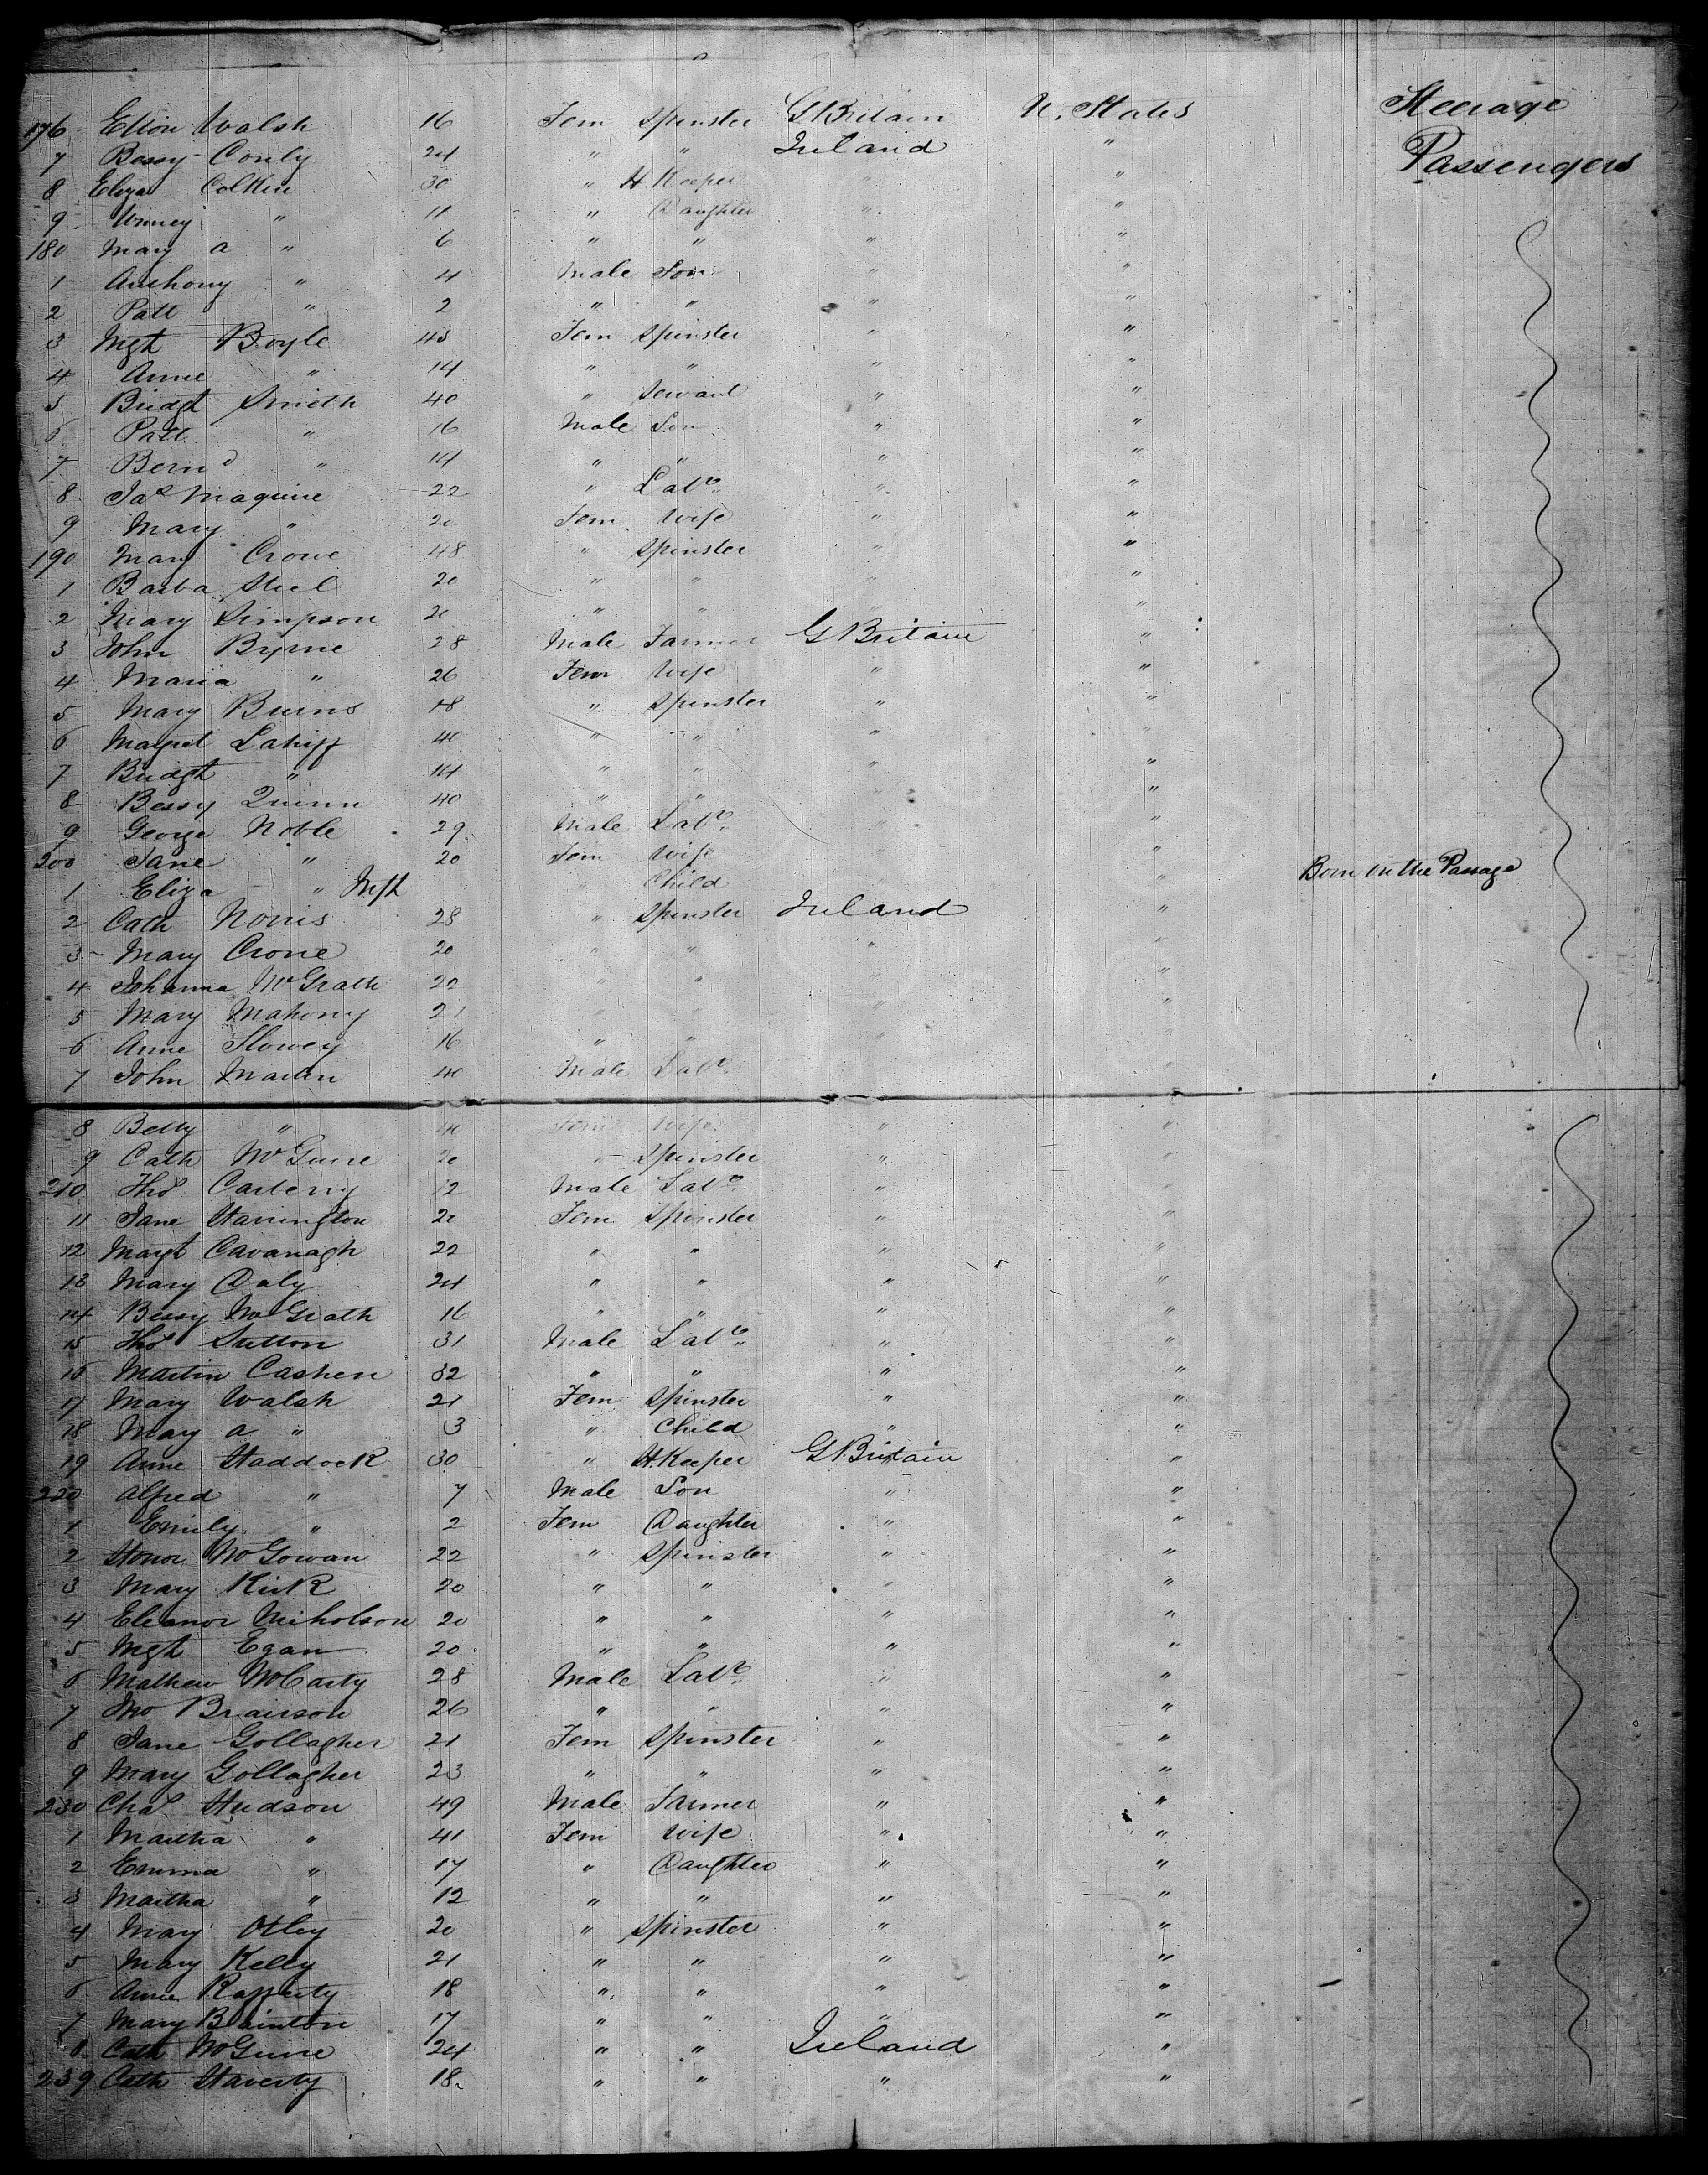 176 Ellen Walsh 16 Fem Spinster G Britain U. States Steerage
7 Bessy Conly 24 " " Ireland " Passengers
8 Eliza Colkin 30 " H. Keeper " "
9 Unney " 11 " Daughter " "
180 Mary A " 6 " " " "
1 Anthony " 4 Male Son " "
2 Patt " 2 " " " "
3 Mgt Boyle 43 Fem Spinster " "
4 Anne " 14 " " " "
5 Bridgt Smith 40 " Servant " "
6 Patt " 16 Male Son " "
7 Bernd " 14 " " " "
8 Jas Maguire 22 " Labr " "
9 Mary " 20 Fem Wife " "
190 Mary Crowe 48 " Spinster " "
1 Barba Steel 20 " " " "
2 Mary Simpson 20 " " " "
3 John Byrne 28 Male Farmer G Britain "
4 Maria " 26 Fem Wife " "
5 Mary Burns 18 " Spinster " "
6 Margret Lahiff 40 " " " "
7 Bridgt " 14 " " " "
8 Bessy Quinn 40 " " " "
9 George Noble 29 Male Labr " "
200 Jane " 20 Fem Wife "
1 Eliza " Inft " Child " Born on the Passage
2 Cath Norris 28 " Spinster Ireland "
3 Mary Crone 20 " " " "
4 Johanna McGrath 22 " " " "
5 Mary Mahony 21 " " " "
6 Anne Slowey 16 " " " "
7 John Martin 40 Male Labr "
8 Betty " 40 Fem Wife " "
9 Cath McGuire 20 " Spinster " "
210 Thos Carberry 12 Male Labr " "
11 Jane Harrington 20 Fem Spinster " "
12 Margt Cavanagh 22 " " " "
13 Mary Daly 24 " " " "
14 Bessy McGrath 16 " " " "
15 Thos Sutton 31 Male Labr " "
16 Martin Cashen 32 " " " "
17 Mary Walsh 21 Fem Spinster " "
18 Mary A " 3 " Child " "
19 Anne Haddock 30 " H. Keeper G Britain "
220 Alfred " 7 Male Son " "
1 Emily " 2 Fem Daughter " "
2 Honor McGowan 22 " Spinster " "
3 Mary Kirk 20 " " " "
4 Eleanor Nicholson 20 " " " "
5 Mgt Egan 20 " " " "
6 Mathew McCarty 28 Male Labr " "
7 Jno Brairson 26 " " " "
8 Jane Gollagher 21 Fem Spinster " "
9 Mary Gollagher 23 " " " "
230 Chas Hudson 49 Male Farmer " "
1 Martha " 41 Fem Wife " "
2 Emma " 17 " Daughter " "
3 Martha " 12 " " " "
4 Mary Otley 20 " Spinster " "
5 Mary Kelly 21 " " " "
6 Annie Rafferty 18 " " " "
7 Mary Bainton 17 " " " "
8 Cath McGuire 24 " " Ireland "
239 Cath Haverty 18 " " " "